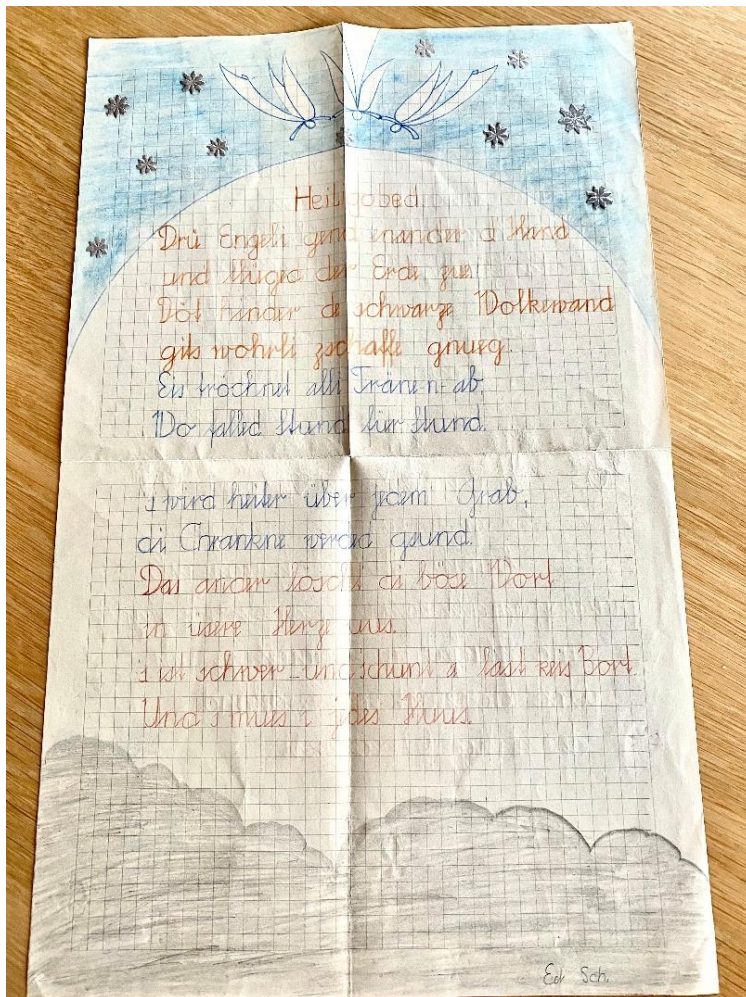 Heiligobed.
Drü Engeli gend enander d Hand
und flüged der Erde zue.
Döt hinder de schwarze Wolkewand
gits wohrli zschaffe gnueg.
Eis tröchnet alli Träne n-ab,
Wo falled Stund für Stund.
s wird heiter über jedem Grab,
di Chrankne werded gsund.
Das ander löscht di böse Wort
in üsere Herze us.
s ist schwer und schunt a fast keis Bort
Und s mues i jedes Huus.
Edi Sch.